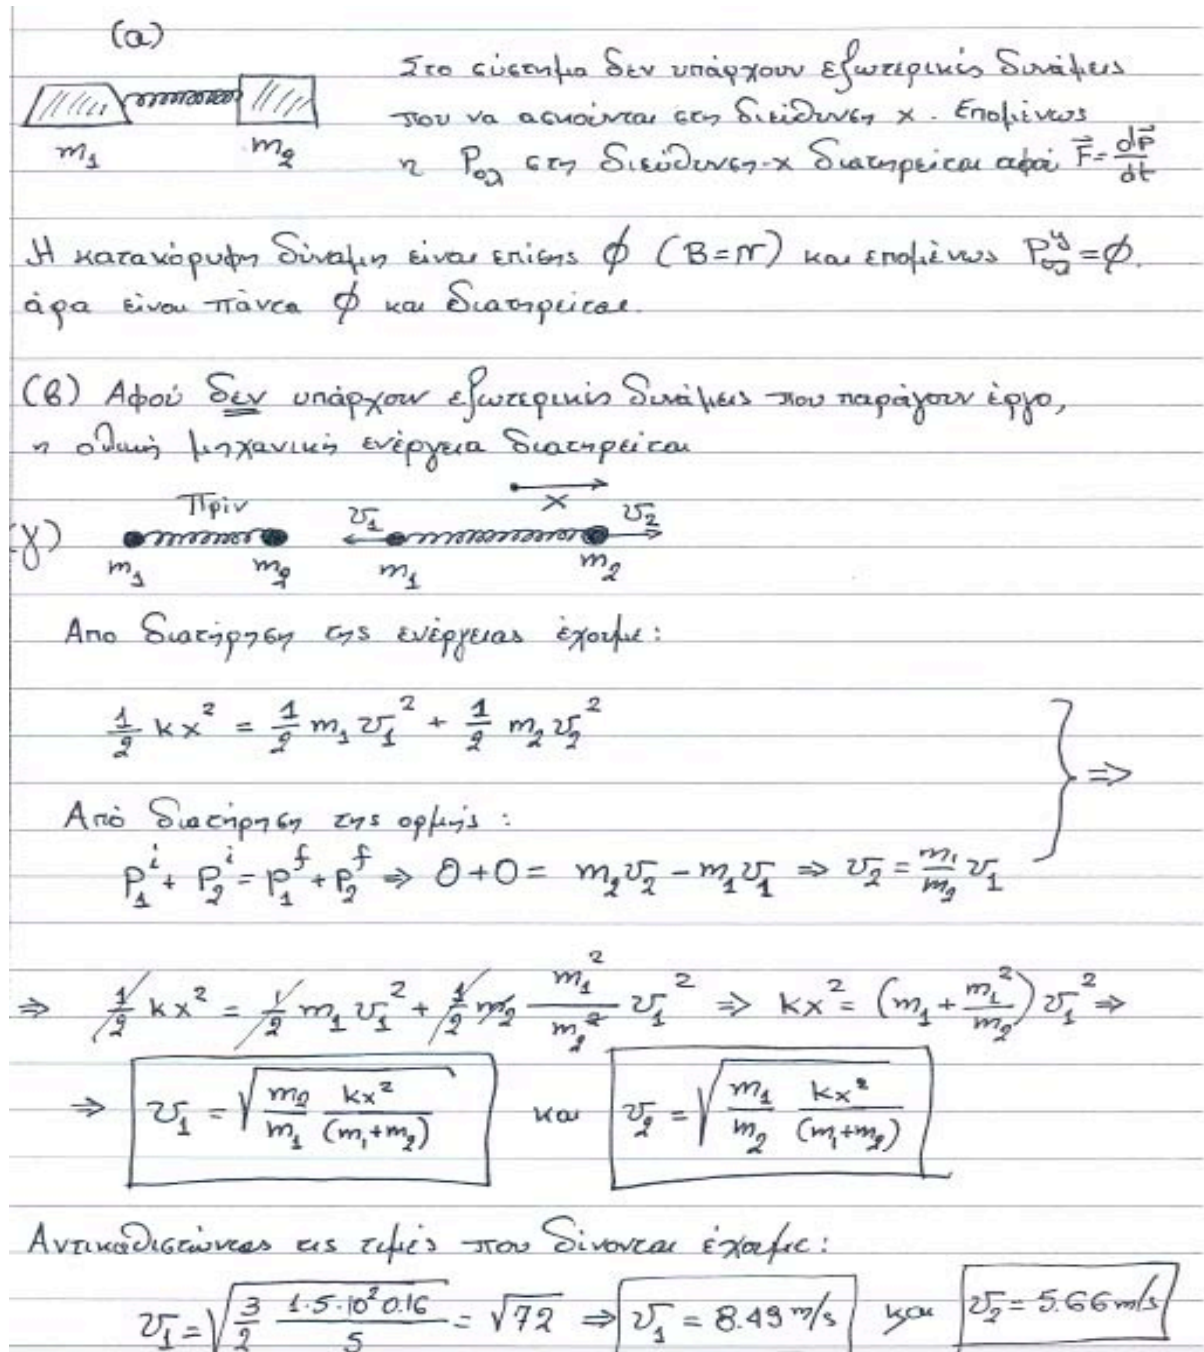 (α)
Στο σύστημα δεν υπάρχουν εξωτερικές δυνάμεις
m₁ m₂ που να ασκούνται στη διεύθυνση x. Επομένως
η P_ολ στη διεύθυνση-x διατηρείται αφού F⃗ = dp⃗/dt
Η κατακόρυφη δύναμη είναι επίσης ∅ (Β=Ν) και επομένως P_ολ^y = ∅.
άρα είναι πάντα ∅ και διατηρείται.
(β) Αφού δεν υπάρχουν εξωτερικές δυνάμεις που παράγουν έργο,
η ολική μηχανική ενέργεια διατηρείται
Πρίν υ₁ x υ₂
(γ) m₁ m₂ m₁ m₂
Απο διατήρηση της ενέργειας έχουμε:
1/2 kx² = 1/2 m₁υ₁² + 1/2 m₂υ₂²
⇒
Από διατήρηση της ορμής:
P₁^i + P₂^i = P₁^f + P₂^f ⇒ 0+0 = m₂υ₂ − m₁υ₁ ⇒ υ₂ = m₁/m₂ υ₁
⇒ 1/2 kx² = 1/2 m₁υ₁² + 1/2 m₂ m₁²/m₂² υ₁² ⇒ kx² = (m₁ + m₁²/m₂) υ₁² ⇒
⇒ υ₁ = √(m₂/m₁ kx²/(m₁+m₂)) και υ₂ = √(m₁/m₂ kx²/(m₁+m₂))
Αντικαθιστώντας τις τιμές που δίνονται έχουμε:
υ₁ = √(3/2 1.5·10² 0.16/5) = √72 ⇒ υ₁ = 8.49 m/s και υ₂ = 5.66 m/s